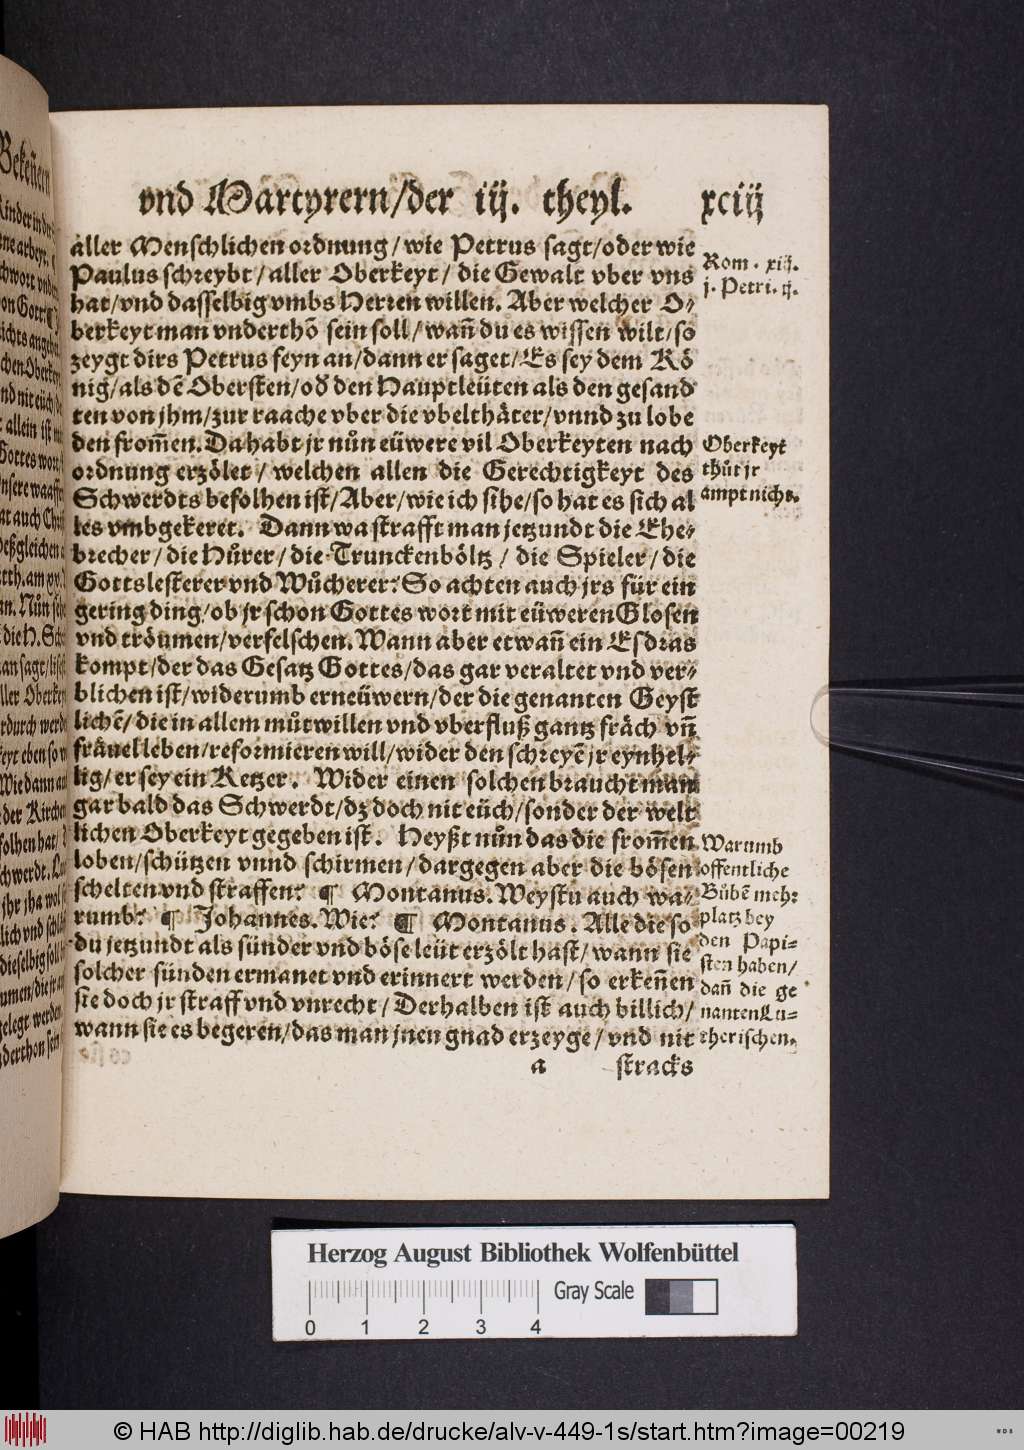 vnd Martyrern/der iij. theyl. xciij
aller Menschlichen ordnung/wie Petrus sagt/oder wie
Paulus schreybt/aller Oberkeyt/die Gewalt vber vns
hat/vnd dasselbig vmbs Herren willen. Aber welcher O-
berkeyt man vnderthō sein soll/wañ du es wissen wilt/so
zeygt dirs Petrus feyn an/dann er saget/Es sey dem Kö
nig/als dē Obersten/oď den Hauptleüten als den gesand
ten von jhm/zur raache vber die vbelthäter/vnnd zu lobe
den from̄en. Da habt jr nůn eüwere vil Oberkeyten nach
ordnung erzölet/welchen allen die Gerechtigkeyt des
Schwerdts befolhen ist/Aber/wie ich sihe/so hat es sich al
les vmbgekeret. Dann wa strafft man jetzundt die Ehe-
brecher/die Hůrer/die Trunckenböltz/die Spieler/die
Gottslesterer vnd Wůcherer? So achten auch jrs für ein
gering ding/ob jr schon Gottes wort mit eüweren Glosen
vnd tröumen/verfelschen. Wann aber etwañ ein Esdras
kompt/der das Gesatz Gottes/das gar veraltet vnd ver-
blichen ist/widerumb erneüwern/der die genanten Geyst
lichē/die in allem můtwillen vnd vberfluß gantz fräch vñ
fräuel leben/reformieren will/wider den schreyē jr eynhel-
lig/er sey ein Ketzer. Wider einen solchen braucht man
gar bald das Schwerdt/dz doch nit eüch/sonder der welt
lichen Oberkeyt gegeben ist. Heyßt nůn das die from̄en
loben/schützen vnnd schirmen/dargegen aber die bösen
schelten vnd straffen? ¶ Montanus. Weystu auch wa-
rumb? ¶ Johannes. Wie? ¶ Montanus. Alle die so
du jetzundt als sünder vnd böse leüt erzölt hast/wann sie
solcher sünden ermanet vnd erinnert werden/so erkeñen
sie doch jr straff vnd vnrecht/Derhalben ist auch billich/
wann sie es begeren/das man jnen gnad erzeyge/vnd nit
a stracks
Rom. xiij.
j. Petri. ij.
Oberkeyt
thůt jr
ampt nicht.
Warumb
offentliche
Bůbē mehr
platz bey
den Papi-
sten haben/
dañ die ge
nanten Lu-
therischen.
Herzog August Bibliothek Wolfenbüttel
Gray Scale
0 1 2 3 4
© HAB http://diglib.hab.de/drucke/alv-v-449-1s/start.htm?image=00219